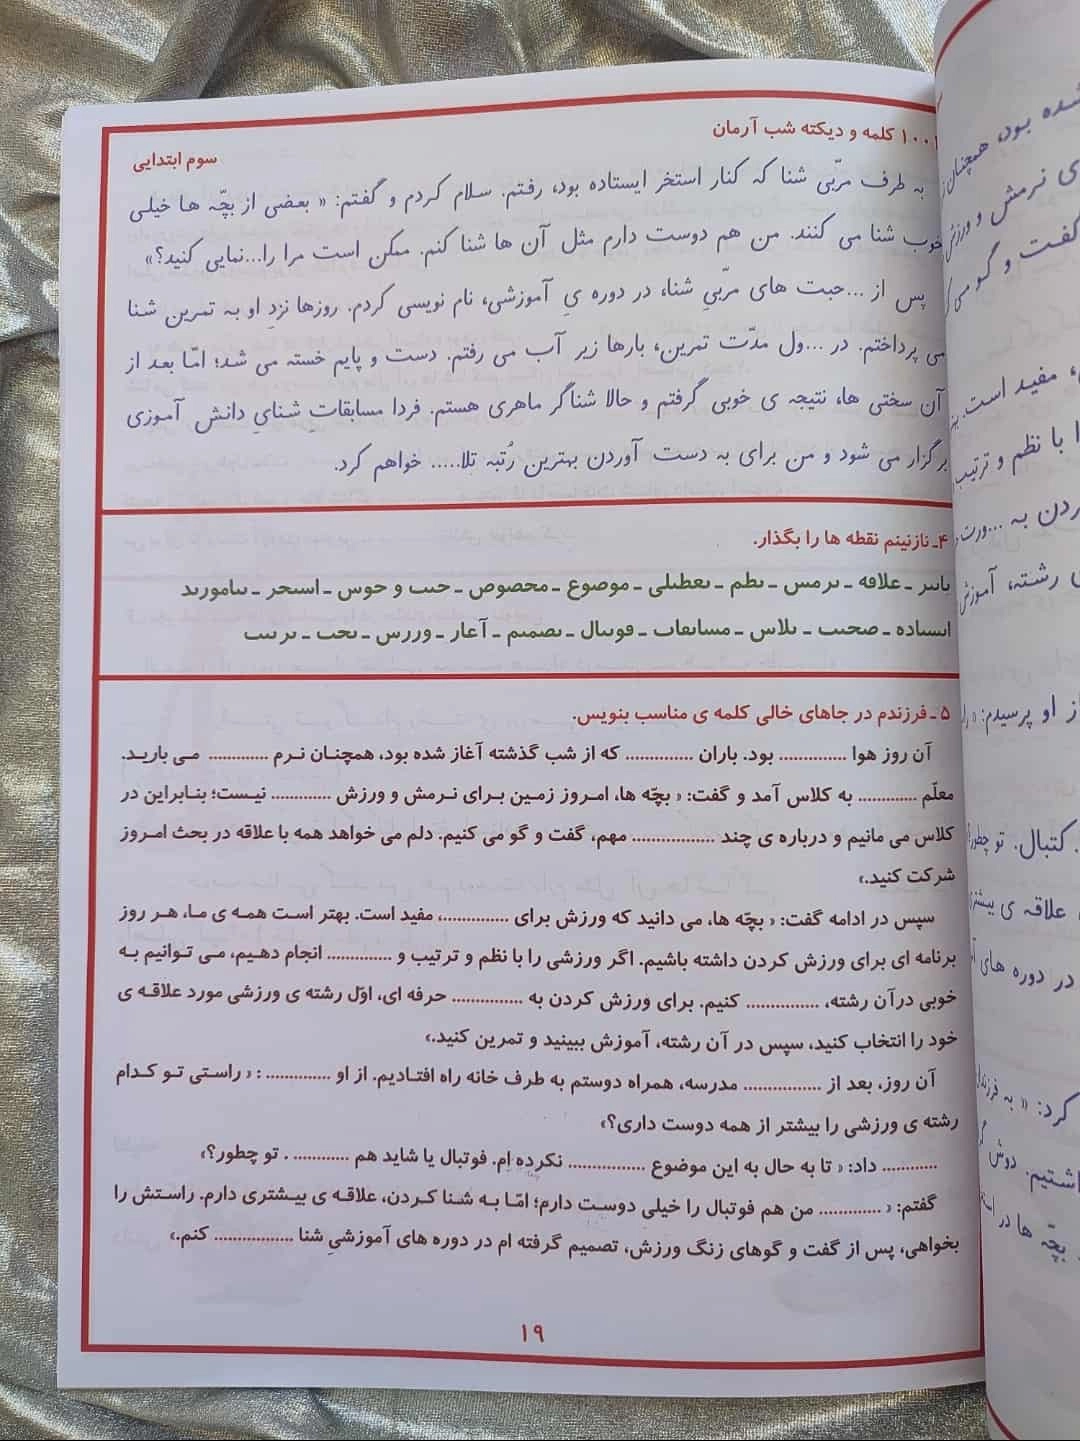 ۱۰۰۱ کلمه و دیکته شب آرمان
سوم ابتدایی
به طرف مربّی شنا که کنار استخر ایستاده بود، رفتم. سلام کردم و گفتم: « بعضی از بچّه ها خیلی
خوب شنا می کنند. من هم دوست دارم مثل آن ها شنا کنم. ممکن است مرا را...نمایی کنید؟»
پس از ...حبت های مربّیِ شنا، در دوره یِ آموزشی، نام نویسی کردم. روزها نزدِ او به تمرین شنا
می پرداختم. در ...ول مدّت تمرین، بارها زیر آب می رفتم. دست و پایم خسته می شد؛ امّا بعد از
آن سختی ها، نتیجه ی خوبی گرفتم و حالا شناگر ماهری هستم. فردا مسابقاتِ شنایِ دانش آموزی
برگزار می شود و من برای به دست آوردن بهترین رُتبه تلا..... خواهم کرد.
۴ـ نازنینم نقطه ها را بگذار.
ٮاٮٮر ـ علاٯه ـ ٮرمس ـ ٮطم ـ ٮعطٮلی ـ موصوع ـ محصوص ـ حٮٮ و حوس ـ اسٮحر ـ ٮٮامورٮد
اٮسٮاده ـ صحٮٮ ـ ٮلاس ـ مساٮٯاٮ ـ ڡوٮٮال ـ ٮصمٮم ـ آعار ـ وررس ـ ٮحٮ ـ ٮرٮٮٮ
۵ ـ فرزندم در جاهای خالی کلمه ی مناسب بنویس.
آن روز هوا .............. بود. باران .............. که از شب گذشته آغاز شده بود، همچنـان نـرم ............ مـی باریـد.
معلّم ............ به کلاس آمد و گفت: « بچّه ها، امـروز زمـین بـرای نـرمش و ورزش ............ نیست؛ بنـابراین در
کلاس می مانیم و درباره ی چند ................. مهم، گفت و گو می کنیم. دلم می خواهد همه با علاقه در بحث امـروز
شرکت کنید.»
سپس در ادامه گفت: « بچّه ها، می دانید که ورزش برای ..............، مفید است. بهتر است همه ی مـا، هـر روز
برنامه ای برای ورزش کردن داشته باشیم. اگر ورزشی را با نظم و ترتیب و ............. انجام دهـیم، مـی تـوانیم بـه
خوبی درآن رشته، ............... کنیم. برای ورزش کردن به ............... حرفه ای، اوّل رشته ی ورزشی مورد علاقـه ی
خود را انتخاب کنید، سپس در آن رشته، آموزش ببینید و تمرین کنید.»
آن روز، بعد از ................ مدرسه، همراه دوستم به طرف خانه راه افتـادیم. از او .............. : « راسـتی تـو کـدام
رشته ی ورزشی را بیشتر از همه دوست داری؟»
............ داد: « تا به حال به این موضوع ................ نکرده ام. فوتبال یا شاید هم ............ . تو چطور؟»
گفتم: « ............. من هم فوتبال را خیلی دوست دارم؛ امّـا بـه شـنا کـردن، علاقـه ی بیـشتری دارم. راسـتش را
بخواهی، پس از گفت و گوهای زنگ ورزش، تصمیم گرفته ام در دوره های آموزشیِ شنا ................. کنم.»
۱۹
شده بود، همچنان
ی نرمش و ورزش
گفت و گو می
مفید است.
ا با نظم و ترتیب
ردن به ...ورت
ی رشته، آموزش
ز او پرسیدم: «
کتبال. تو چطور
علاقه ی بیشتری
در دوره های
کرد: « به فرزندان
اشتیم. دوش
بچّه ها در